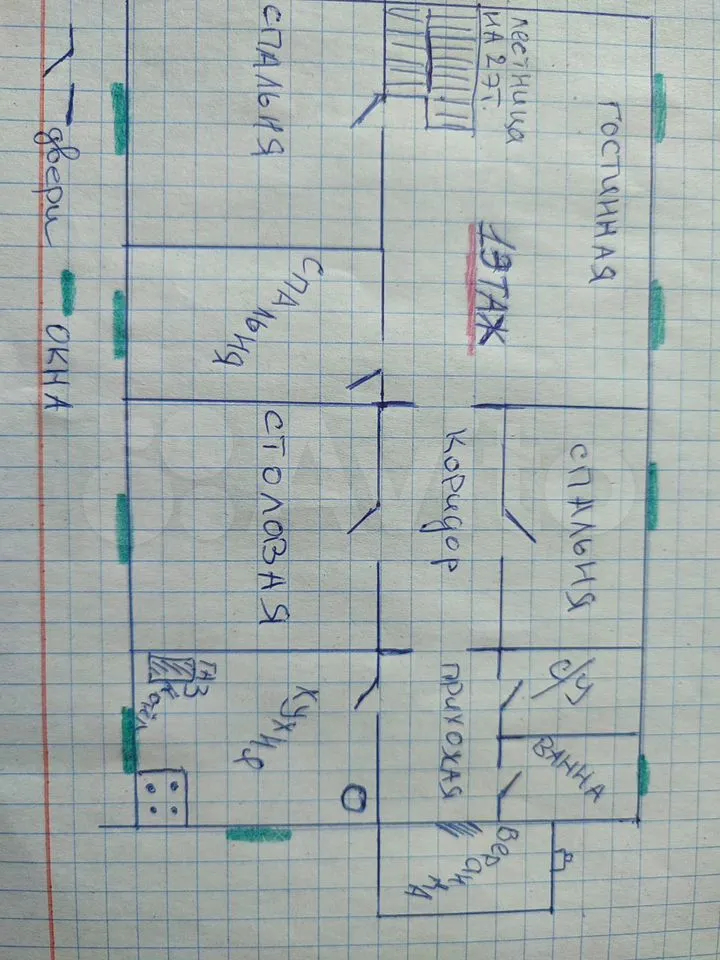 СПАЛЬНЯ
ЛЕСТНИЦА
НА 2 ЭТ.
ГОСТИННАЯ
1 ЭТАЖ
СПАЛЬНЯ
СТОЛОВАЯ
Коридор
СПАЛЬНЯ
КУХНЯ
ГАЗ
котёл
ПРИХОЖАЯ
С/У
ВАННА
ВЕРАНДА
двери
ОКНА
Avito